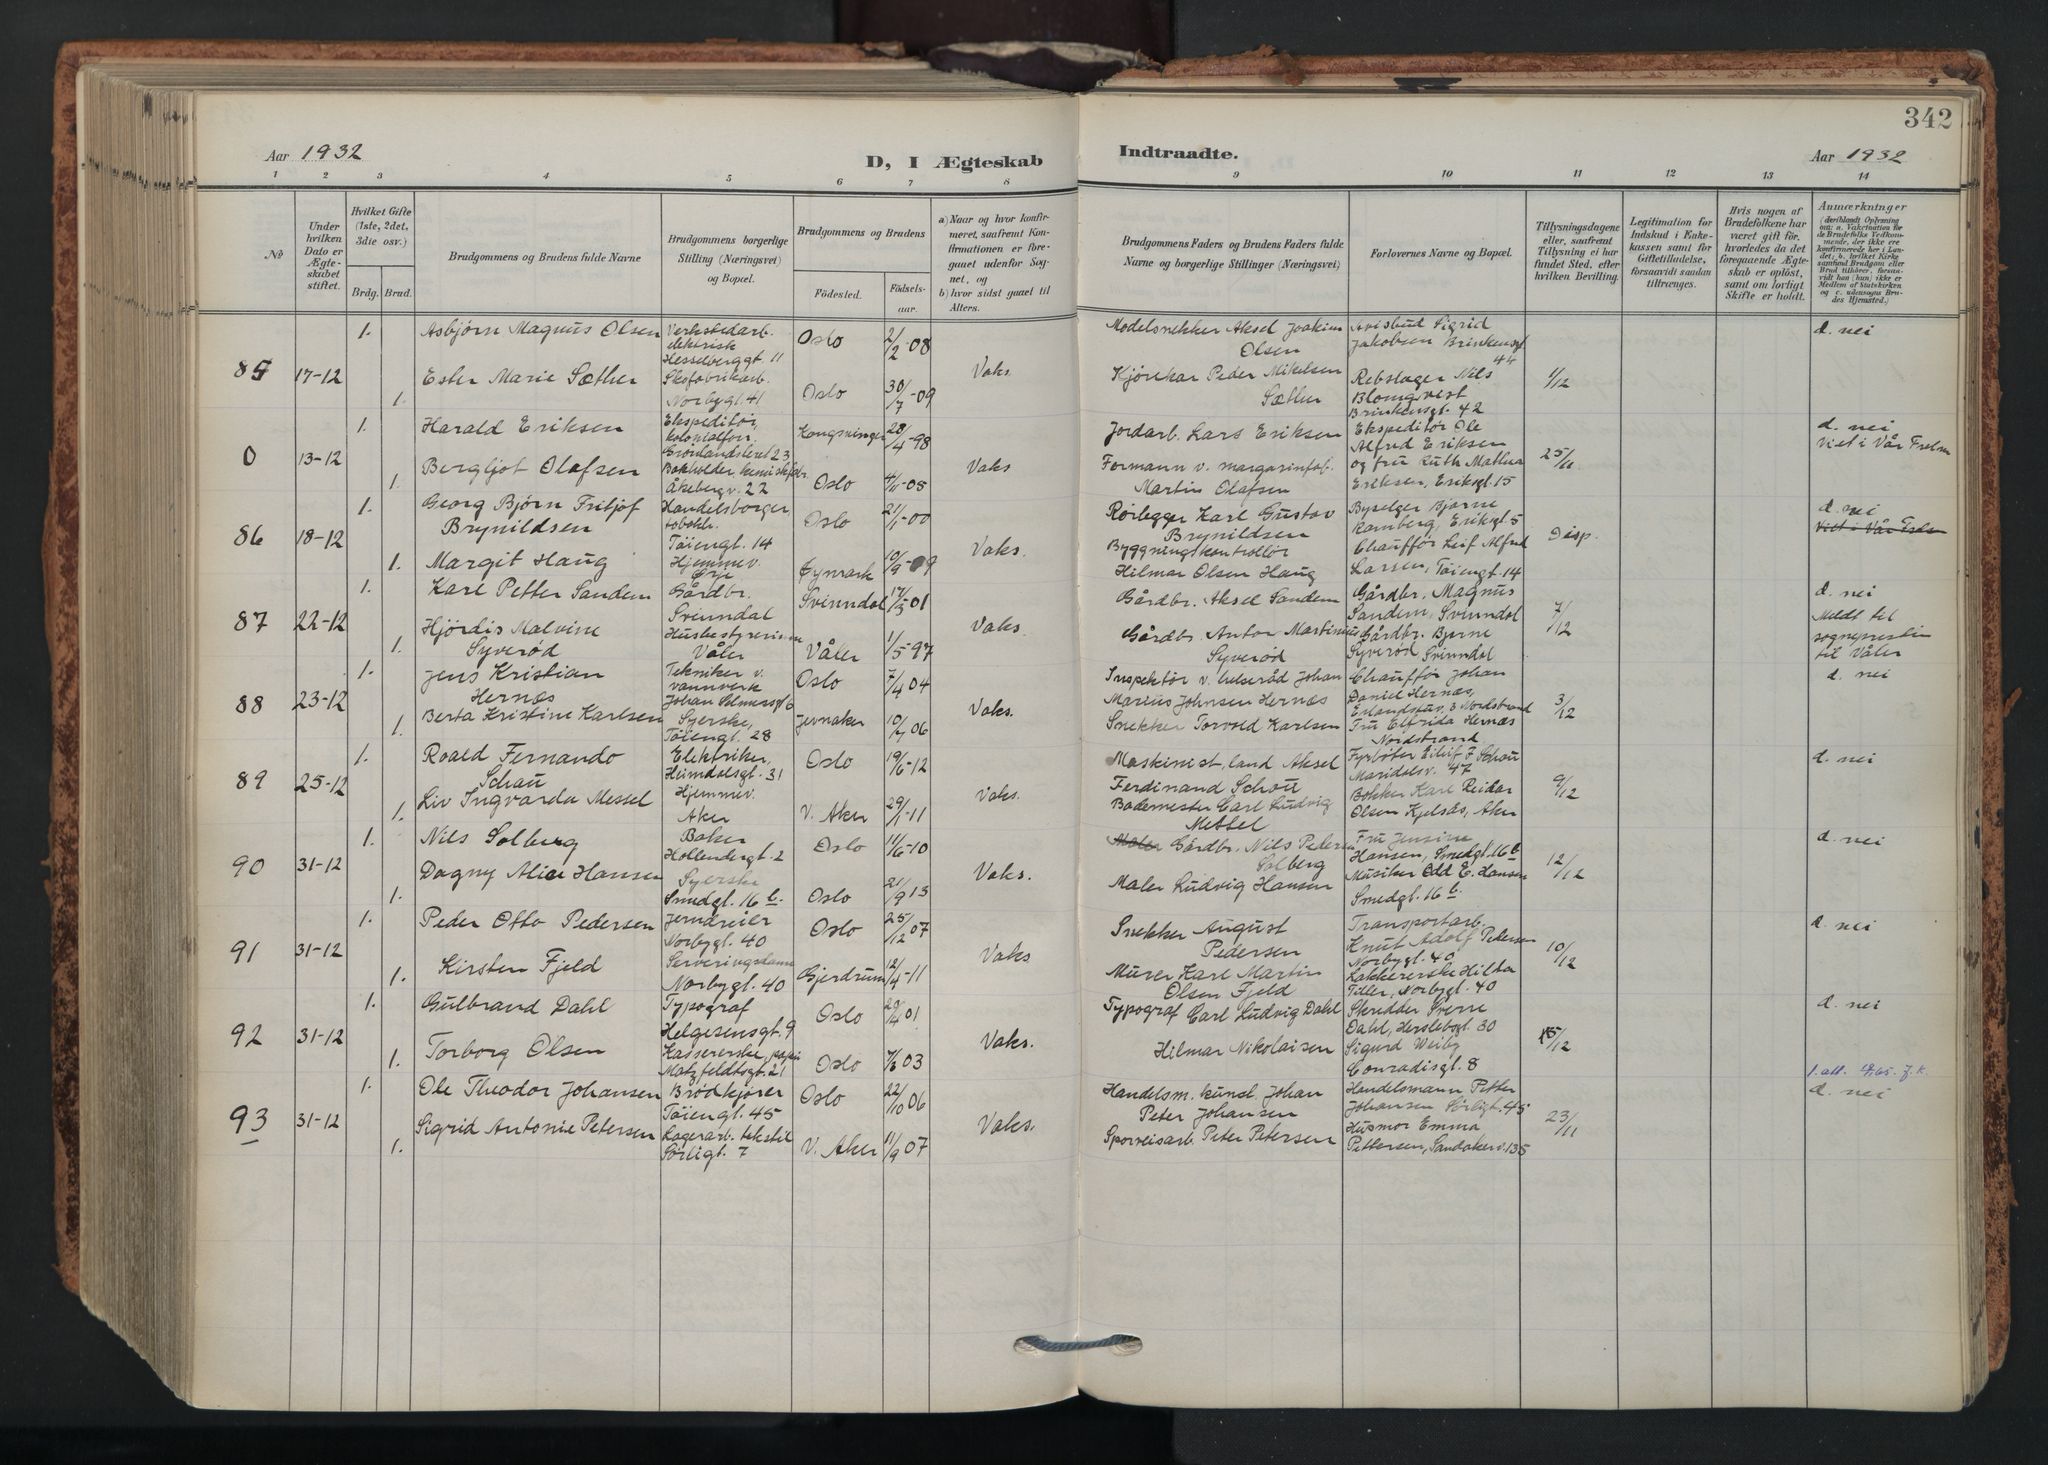 342
Aar 1932
D, I Ægteskab
Indtraadte.
Aar 1932
1 2 3 4 5 6 7 8 9 10 11 12 13 14
No
Under
hvilken
Dato er
Ægte-
skabet
stiftet.
Hvilket Gifte
(1ste, 2det,
3die osv.)
Brdg.
Brud.
Brudgommens og Brudens fulde Navne
Brudgommens borgerlige
Stilling (Næringsvei)
og Bopæl.
Brudgommens og Brudens
Fødested.
Fødsels-
aar.
a) Naar og hvor konfir-
meret, saafremt Kon-
firmationen er fore-
gaaet udenfor Sog-
net, og
b) hvor sidst gaaet til
Alters.
Brudgommens Faders og Brudens Faders fulde
Navne og borgerlige Stillinger (Næringsvei)
Forlovernes Navne og Bopæl.
Tillysningsdagene
eller, saafremt
Tillysning ei har
fundet Sted, efter
hvilken Bevilling.
Legitimation for
Indskud i Enke-
kassen samt for
Giftetilladelse,
forsaavidt saadan
tiltrænges.
Hvis nogen af
Brudefolkene har
været gift før,
hvorledes da det
foregaaende Ægte-
skab er opløst,
samt om lovligt
Skifte er holdt.
Anmærkninger
(deriblandt Oplysning
om: a. Vakcination for
de Brudefolks Vedkom-
mende, der ikke ere
konfirmerede her i Lan-
det; b. hvilket Kirke-
samfund Brudgom eller
Brud tilhører, forsaa-
vidt han (hun) ikke er
Medlem af Statskirken
og c. udensogns Bru-
des Hjemsted.)
85 17-12
1. Asbjørn Magnus Olsen
Verkstedarb.
elektrisk
Hesselberggt. 11
Oslo 2/2-08
Modelsnekker Aksel Joakim
Olsen
Avisbud Sigrid
Jakobsen Brinkensgt
44
d. nei
1. Ester Marie Sæther
Skofabrikarb.
Norbygt. 41
Oslo 30/7-09
Vaks
Kjørekar Peder Mikelsen
Sæther
Rebslager Nils
Blomqvist
Brinkensgt. 42
1/12
0 13-12
1. Harald Eriksen
Ekspeditør,
kolonialforr.
Grønlandsleret 23
Kongsvinger 28/4-98
Jordarb. Lars Eriksen
Ekspeditør Ole
Alfred Eriksen
d. nei
1. Bergljot Olafsen
Bokholder kemisk fabr.
Åkebergv. 22
Oslo 4/11-05
Vaks
Formann v. margarinfab.
Martin Olafsen
og fru Ruth Mathea
Eriksen, Eriksgt. 15
25/11
Viet i Vår Frelser
86 18-12
1. Georg Bjørn Fritjof
Brynildsen
Handelsborger
tobakk.
Tøiengt. 14
Oslo 21/1-00
Rørlegger Karl Gustav
Brynildsen
Byselger Bjarne
Ramberg, Eriksgt. 5
Disp.
d. nei
Viet i Vår Frelser
1. Margit Haug
Hjemmev.
Ørje
Øymark 10/9-09
Vaks.
Byggningskontrollør
Hilmar Olsen Haug
Chauffør Leif Alfred
Larsen, Tøiengt. 14
87 22-12
1. Karl Petter Sandem
Gårdbr.
Svinndal
Svinndal 17/3-01
Gårdbr. Aksel Sandem
Gårdbr. Magnus
Sandem, Svinndal
d. nei
1. Hjørdis Malvine
Syverød
Husbestyrerinne
Våler
Våler 1/5-97
Vaks.
Gårdbr. Anton Martinius
Syverød
Gårdbr. Bjarne
Syverød Svinndal
7/12
Meldt til
sognepresten
til Våler
88 23-12
1. Jens Kristian
Hernæs
Tekniker v.
vannverk
Johan Selmersgt 6
Oslo 7/4 04
Inspektør v. helseråd Johan
Marius Johnsen Hernæs
Chauffør Johan
Daniel Hernæs,
Erlandstuv. 3 Nordstrand
d. nei
1. Berta Kristine Karlsen
Syerske,
Tøiengt. 28
Jevnaker 10/7 06
Vaks.
Snekker Torvald Karlsen
Fru Elfrida Hernæs
Nordstrand
3/12
89 25-12
1. Roald Fernando
Schau
Elektriker,
Heimdalsgt. 31
Oslo 19/6-12
Maskinist, land Aksel
Ferdinand Schau
Fyrbøter Eilif F. Schau
Maridalsv. 47
d. nei
1. Liv Ingvarda Messel
Hjemmev.
Aker
V. Aker 29/1-11
Vaks.
Bademester Carl Ludvig
Messel
Bokker Karl Reidar
Olsen Kjelsås, Aker
9/12
90 31-12
1. Nils Solberg
Baker
Hollendergt. 2
Oslo 11/6-10
Maler Gårdbr. Nils Pedersen
Solberg
Fru Jensine
Hansen, Smedgt. 16 b
d. nei
1. Dagny Alice Hansen
Syerske
Smedgt. 16 b.
Oslo 21/9 13
Vaks.
Maler Ludvig Hansen
Musiker Odd E. Hansen
Smedgt. 16 b
12/12
91 31-12
1. Peder Otto Pedersen
Jerndreier
Norbygt. 40
Oslo 25/12 07
Snekker August
Pedersen
Transportarb.
Knut Adolf Pedersen
Norbygt. 40
d. nei
1. Kirsten Fjeld
Serveringsdame
Norbygt. 40
Gjerdrum 12/4-11
Vaks
Murer Karl Martin
Olsen Fjeld
Lakkererske Hilda
Tiller, Norbygt. 40
10/12
92 31-12
1. Gulbrand Dahl
Typograf
Helgesensgt. 9
Oslo 29/4 01
Typograf Carl Ludvig Dahl
Skredder Sverre
Dahl, Herslebsgt. 30
d. nei
1. Torborg Olsen
Kassererske, papir
Matzfeldtsgt. 21
Oslo 7/6 03
Vaks.
Hilmar Nikolaisen
Sigurd Weiby
Conradisgt. 8
15/12
93 31-12
1. Ole Theodor Johansen
Brødkjører
Tøiengt. 45
Oslo 22/10 06
Handelsm. kunsd. Johan
Peter Johansen
Handelsmann Petter
Johansen Sørligt. 45
d. nei
1. Sigrid Antonie Petersen
Lagerarb. tekstil
Sørligt. 7
V. Aker 11/9 07
Vaks.
Sporveisarb. Peter Petersen
Husmor Emma
Pettersen, Sandakerv. 135
23/11